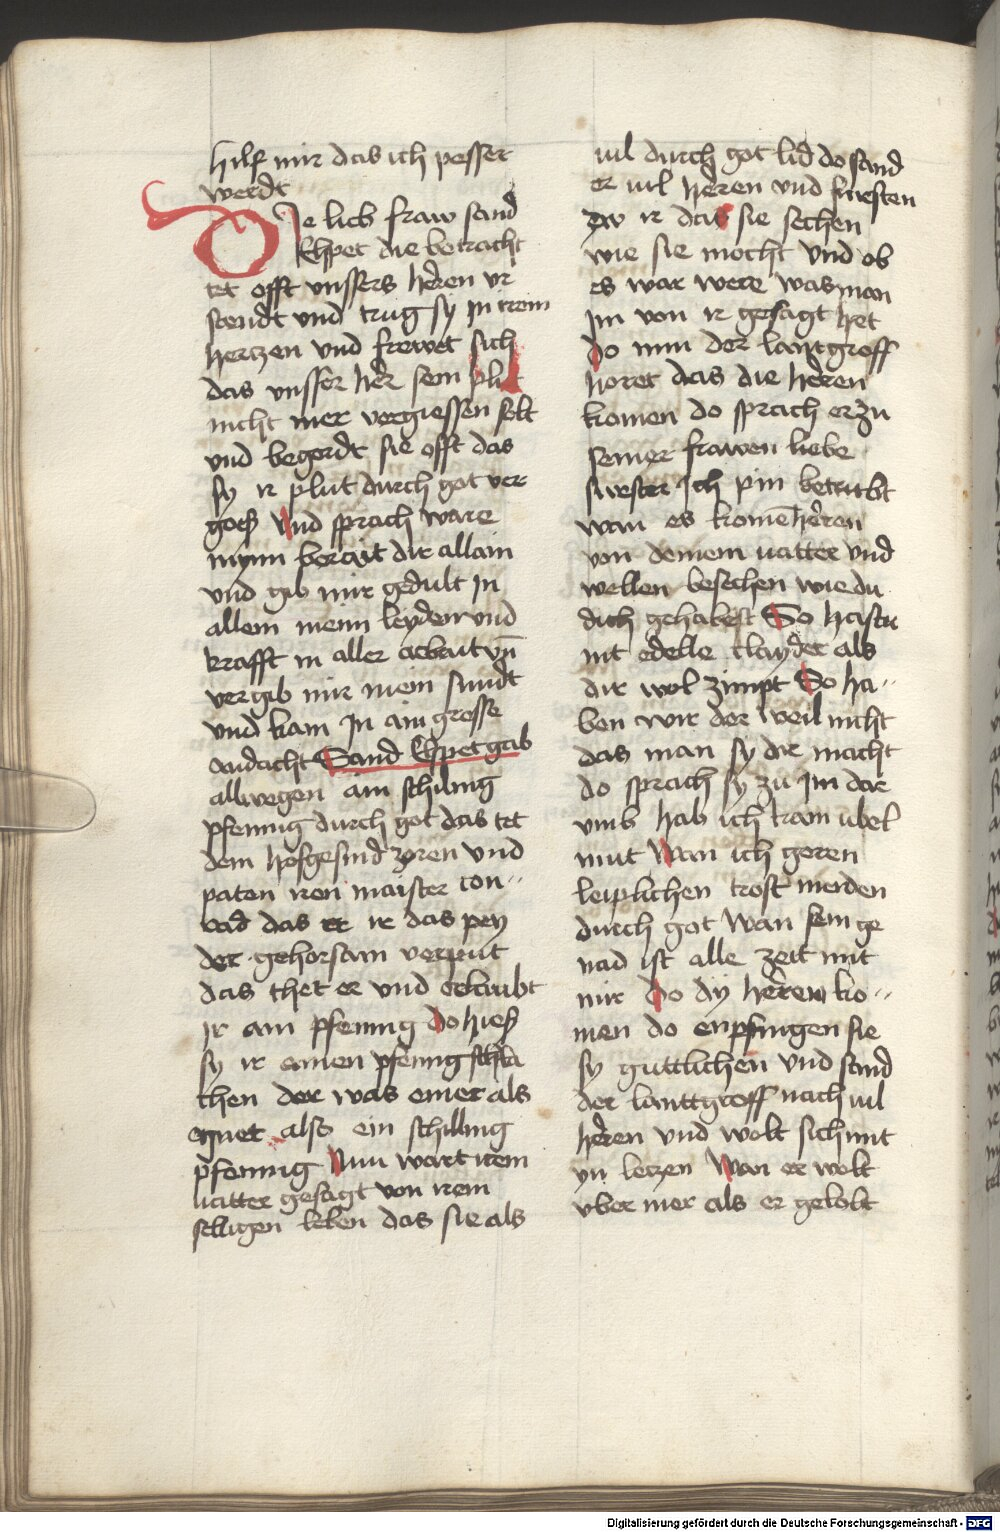 hilf mir das ich pesser
werdt
Die lieb fraw sand
Elspet die betracht
tet offt unssers heren ur
stendt und trug sy jn irem
hertzen und frewet sich
das unsser her sein plut
nicht mer vergiessen solt
und begerdt sie offt das
sy ir plut durch got ver
goeß Und sprach ware
mynn berait dir allain
und gib mir gedult jn
allem meim leyden und
krafft in aller arbait un̄
vergib mir mein sundt
und kam jn ain grosse
andacht Sand Elspet gab
allwegen ain schiling
pfennig durch got das tet
dem hofgesind zoren und
paten iren maister con
rad das er ir das pey
der gehorsam verput
das thet er und erlaubt
jr ain pfennig Do hieß
sy ir einen pfennig schla
chen der was einer als
also ein schilling
pfennig Nun wart irem
vatter gesagt von irem
selligen leben das sie als
vil durch got lid do sand
er vil heren und fursten
zw ir das sie sechen
wie sie mocht und ob
es war were was man
jm von ir gesagt het
Do nun der lantgroff
horet das die heren
komen do sprach er zu
seiner frawen liebe
swester Ich pin betrubt
wan es komē heren
von deinem vatter und
wellen besechen wie du
dich gehabest So hastu
nit edelle clayder als
dir wol zimpt So ha
ben wir der weil nicht
das man sy dir macht
do sprach sy zu jm dar
umb hab ich kain ubel
mut Wan ich geren
leiplichen trost meiden
durch got wan sein ge
nad ist alle zeit mit
mir Do dy heren ko
men do enpfingen sie
sy guttlichen und sand
der lanttgroff nach vil
heren und wolt sich mit
yn letzen Wan er wolt
uber mer als er gelobt
Digitalisierung gefördert durch die Deutsche Forschungsgemeinschaft - DFG